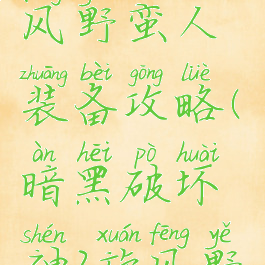 风野蛮人
zhuāng bèi gōng lüè
装备攻略(
àn hēi pò huài
暗黑破坏
shén xuán fēng yě
神2旋风野